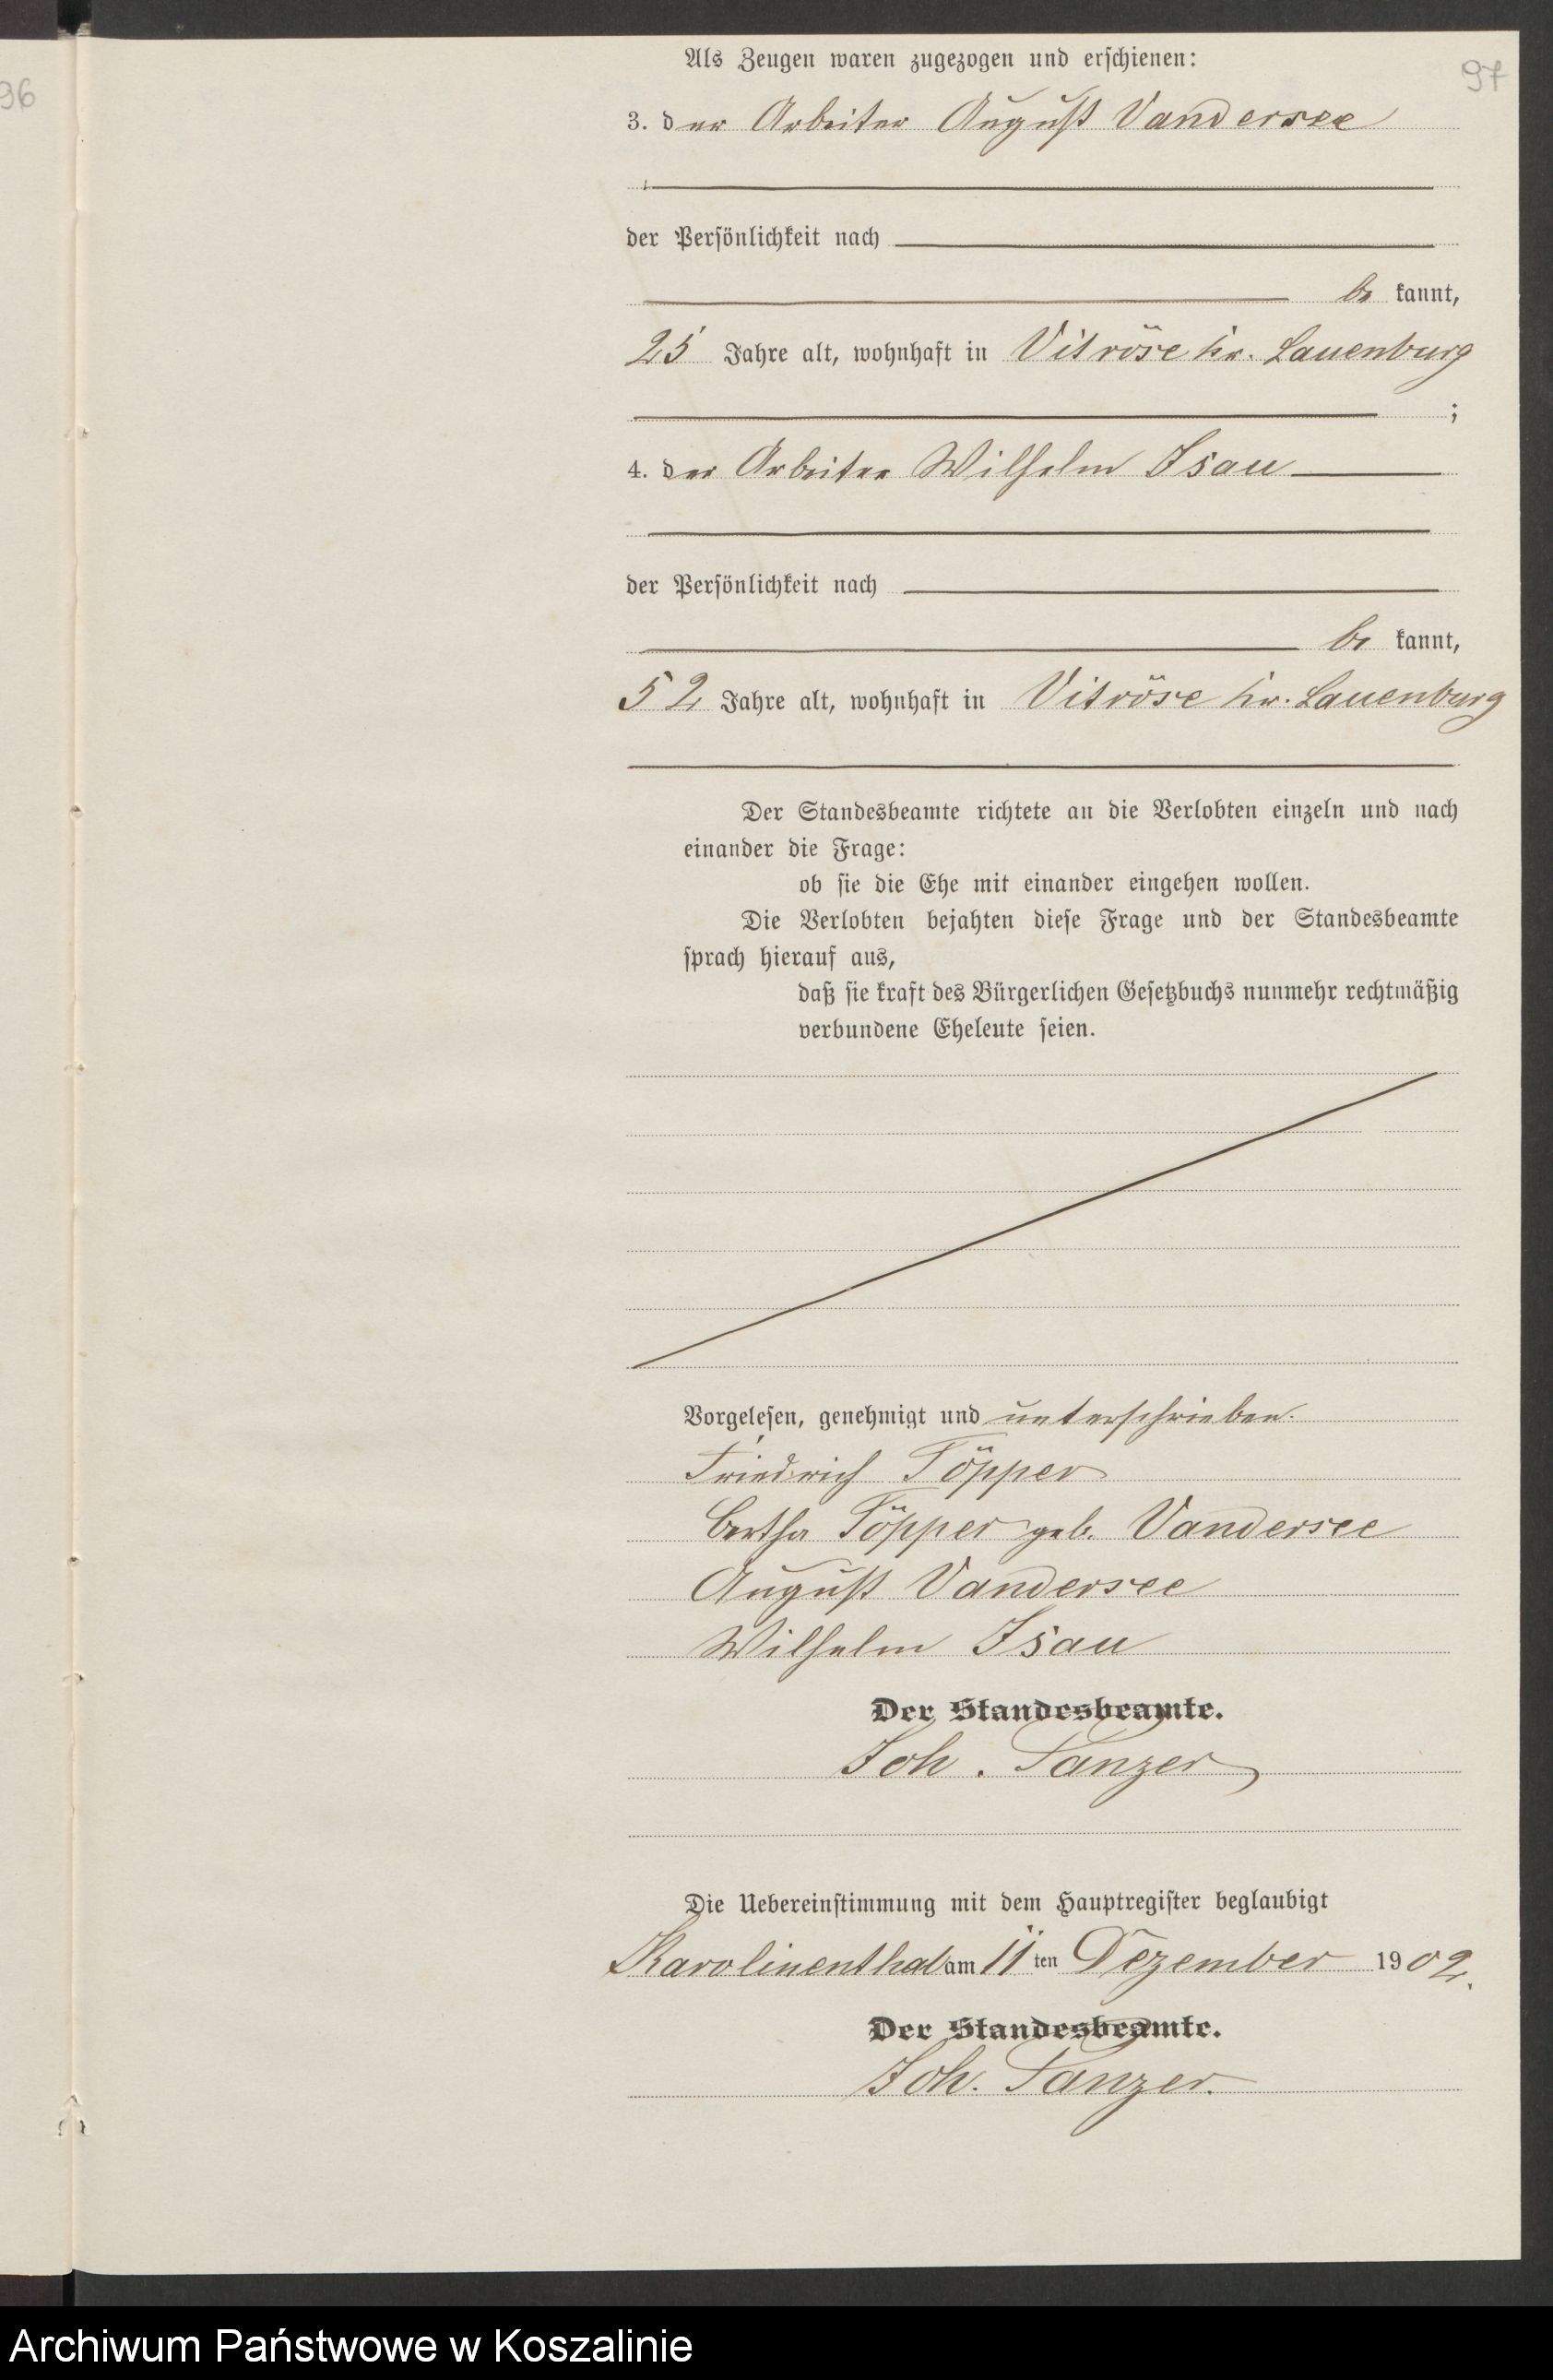 96
97
Als Zeugen waren zugezogen und erschienen:
3. der Arbeiter August Vandersee
der Persönlichkeit nach
be kannt,
25 Jahre alt, wohnhaft in Vitröse Kr. Lauenburg
;
4. der Arbeiter Wilhelm Isau
der Persönlichkeit nach
be kannt,
52 Jahre alt, wohnhaft in Vitröse Kr. Lauenburg
Der Standesbeamte richtete an die Verlobten einzeln und nach
einander die Frage:
ob sie die Ehe mit einander eingehen wollen.
Die Verlobten bejahten diese Frage und der Standesbeamte
sprach hierauf aus,
daß sie kraft des Bürgerlichen Gesetzbuchs nunmehr rechtmäßig
verbundene Eheleute seien.
Vorgelesen, genehmigt und unterschrieben.
Friedrich Töpper
Bertha Töpper geb. Vandersee
August Vandersee
Wilhelm Isau
Der Standesbeamte.
Joh. Panzer
Die Uebereinstimmung mit dem Hauptregister beglaubigt
Karolinenthal am 11 ten Dezember 1902.
Der Standesbeamte.
Joh. Panzer.
Archiwum Państwowe w Koszalinie